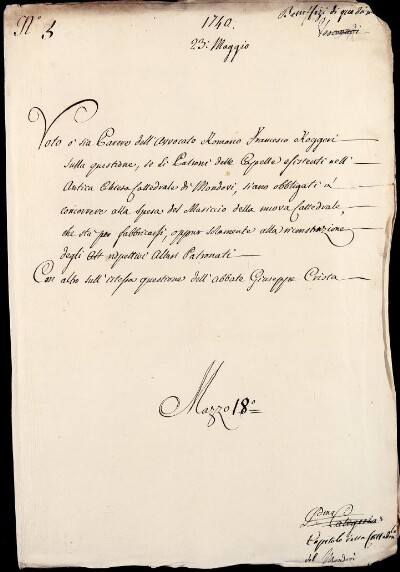 N.° 5
1740.
23: Maggio
Benefizi di qua da
Vescovadi
Voto o' sia Parere dell'Avvocato Romano Francesco Roggeri
sulla questione, se li Patroni delle Capelle esistenti nell'
Antica Chiesa Cattedrale di Mondovì, siano obbligati a'
concorrere alla spesa del Massiccio della nuova Cattedrale,
che stà per fabbricarsi, oppur solamente alla ricostruzione
degli rispettivi Altari Patronati
Con altro sull'istessa questione dell'abbate Giuseppe Crista
Mazzo 18.°
Categoria
Capitolo della Cattedrale
del Mondovì